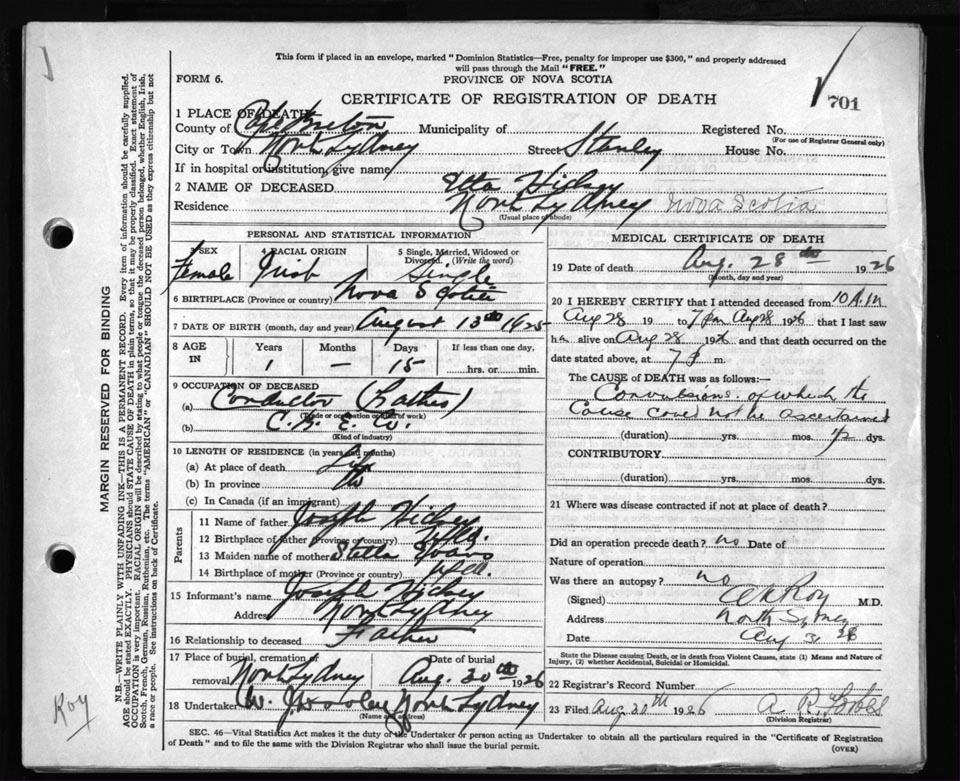 This form if placed in an envelope, marked "Dominion Statistics—Free, penalty for improper use $300," and properly addressed
will pass through the Mail "FREE."
FORM 6.
PROVINCE OF NOVA SCOTIA
CERTIFICATE OF REGISTRATION OF DEATH
701
1 PLACE OF DEATH
County of Cape Breton Municipality of Registered No.
(For use of Registrar General only)
City or Town North Sydney Street Stanley House No.
If in hospital or institution, give name
2 NAME OF DECEASED Etta Hickey
Residence North Sydney Nova Scotia
(Usual place of abode)
PERSONAL AND STATISTICAL INFORMATION
3 SEX Female
4 RACIAL ORIGIN Irish
5 Single, Married, Widowed or Divorced. (Write the word) Single
6 BIRTHPLACE (Province or country) Nova Scotia
7 DATE OF BIRTH (month, day and year) August 13th 1925
8 AGE IN
Years Months Days If less than one day,
1 — 15 hrs. or min.
9 OCCUPATION OF DECEASED
(a) Conductor (Father)
(Trade or occupation or kind of work)
(b)
(Kind of industry)
10 LENGTH OF RESIDENCE (in years and months)
(a) At place of death Life
(b) In province
(c) In Canada (if an immigrant)
Parents
11 Name of father Joseph Hickey
12 Birthplace of father (Province or country) Nfld.
13 Maiden name of mother Stella Evans
14 Birthplace of mother (Province or country) Nfld.
15 Informant's name Joseph Hickey
Address North Sydney
16 Relationship to deceased Father
17 Place of burial, cremation or removal North Sydney Date of burial Aug. 30th 1926
18 Undertaker North Sydney
(Name and address)
MEDICAL CERTIFICATE OF DEATH
19 Date of death Aug. 28th 1926
(Month, day and year)
20 I HEREBY CERTIFY that I attended deceased from 10 A.M
Aug 28 19 to 7 pm Aug 28 1926 that I last saw
h alive on Aug 28 1926 and that death occurred on the
date stated above, at 7 p. m.
The CAUSE OF DEATH was as follows:—
Convulsions of which the
cause could not be ascertained
(duration) yrs. mos. 1/2 dys.
CONTRIBUTORY
(duration) yrs. mos. dys.
21 Where was disease contracted if not at place of death?
Did an operation precede death? no Date of
Nature of operation
Was there an autopsy? no
(Signed) Roy M.D.
Address North Sydney
Date Aug 31 28
State the Disease causing Death, or in death from Violent Causes, state (1) Means and Nature of
Injury, (2) whether Accidental, Suicidal or Homicidal.
22 Registrar's Record Number
23 Filed Aug 30th 1926 A. R. Forbes
(Division Registrar)
SEC. 46—Vital Statistics Act makes it the duty of the Undertaker or person acting as Undertaker to obtain all the particulars required in the "Certificate of Registration
of Death" and to file the same with the Division Registrar who shall issue the burial permit.
(OVER)
MARGIN RESERVED FOR BINDING
N.B.—WRITE PLAINLY WITH UNFADING INK—THIS IS A PERMANENT RECORD. Every item of information should be carefully supplied.
AGE should be stated EXACTLY. PHYSICIANS should STATE CAUSE OF DEATH in plain terms, so that it may be properly classified. Exact statement of
OCCUPATION is very important. RACIAL ORIGIN will be described by stating to what people or tongue the deceased person belonged, whether English, Irish,
Scotch, French, German, Russian, Ruthenian, etc. The terms "AMERICAN" or "CANADIAN" SHOULD NOT BE USED as they express citizenship but not
a race or people. See instructions on back of Certificate.
Roy